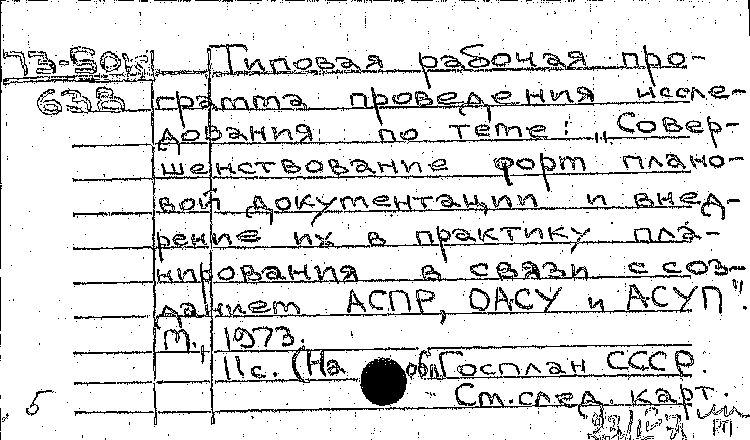 Типовая рабочая про-
638 грамма проведения иссле-
дования по теме: „Совер-
шенствование форм плано-
вой документации и внед-
рение их в практику пла-
нирования в связи с соз-
данием АСПР, ОАСУ и АСУП".
М., 1973.
11с. (На обл. Госплан СССР.
См. след. карт.
5